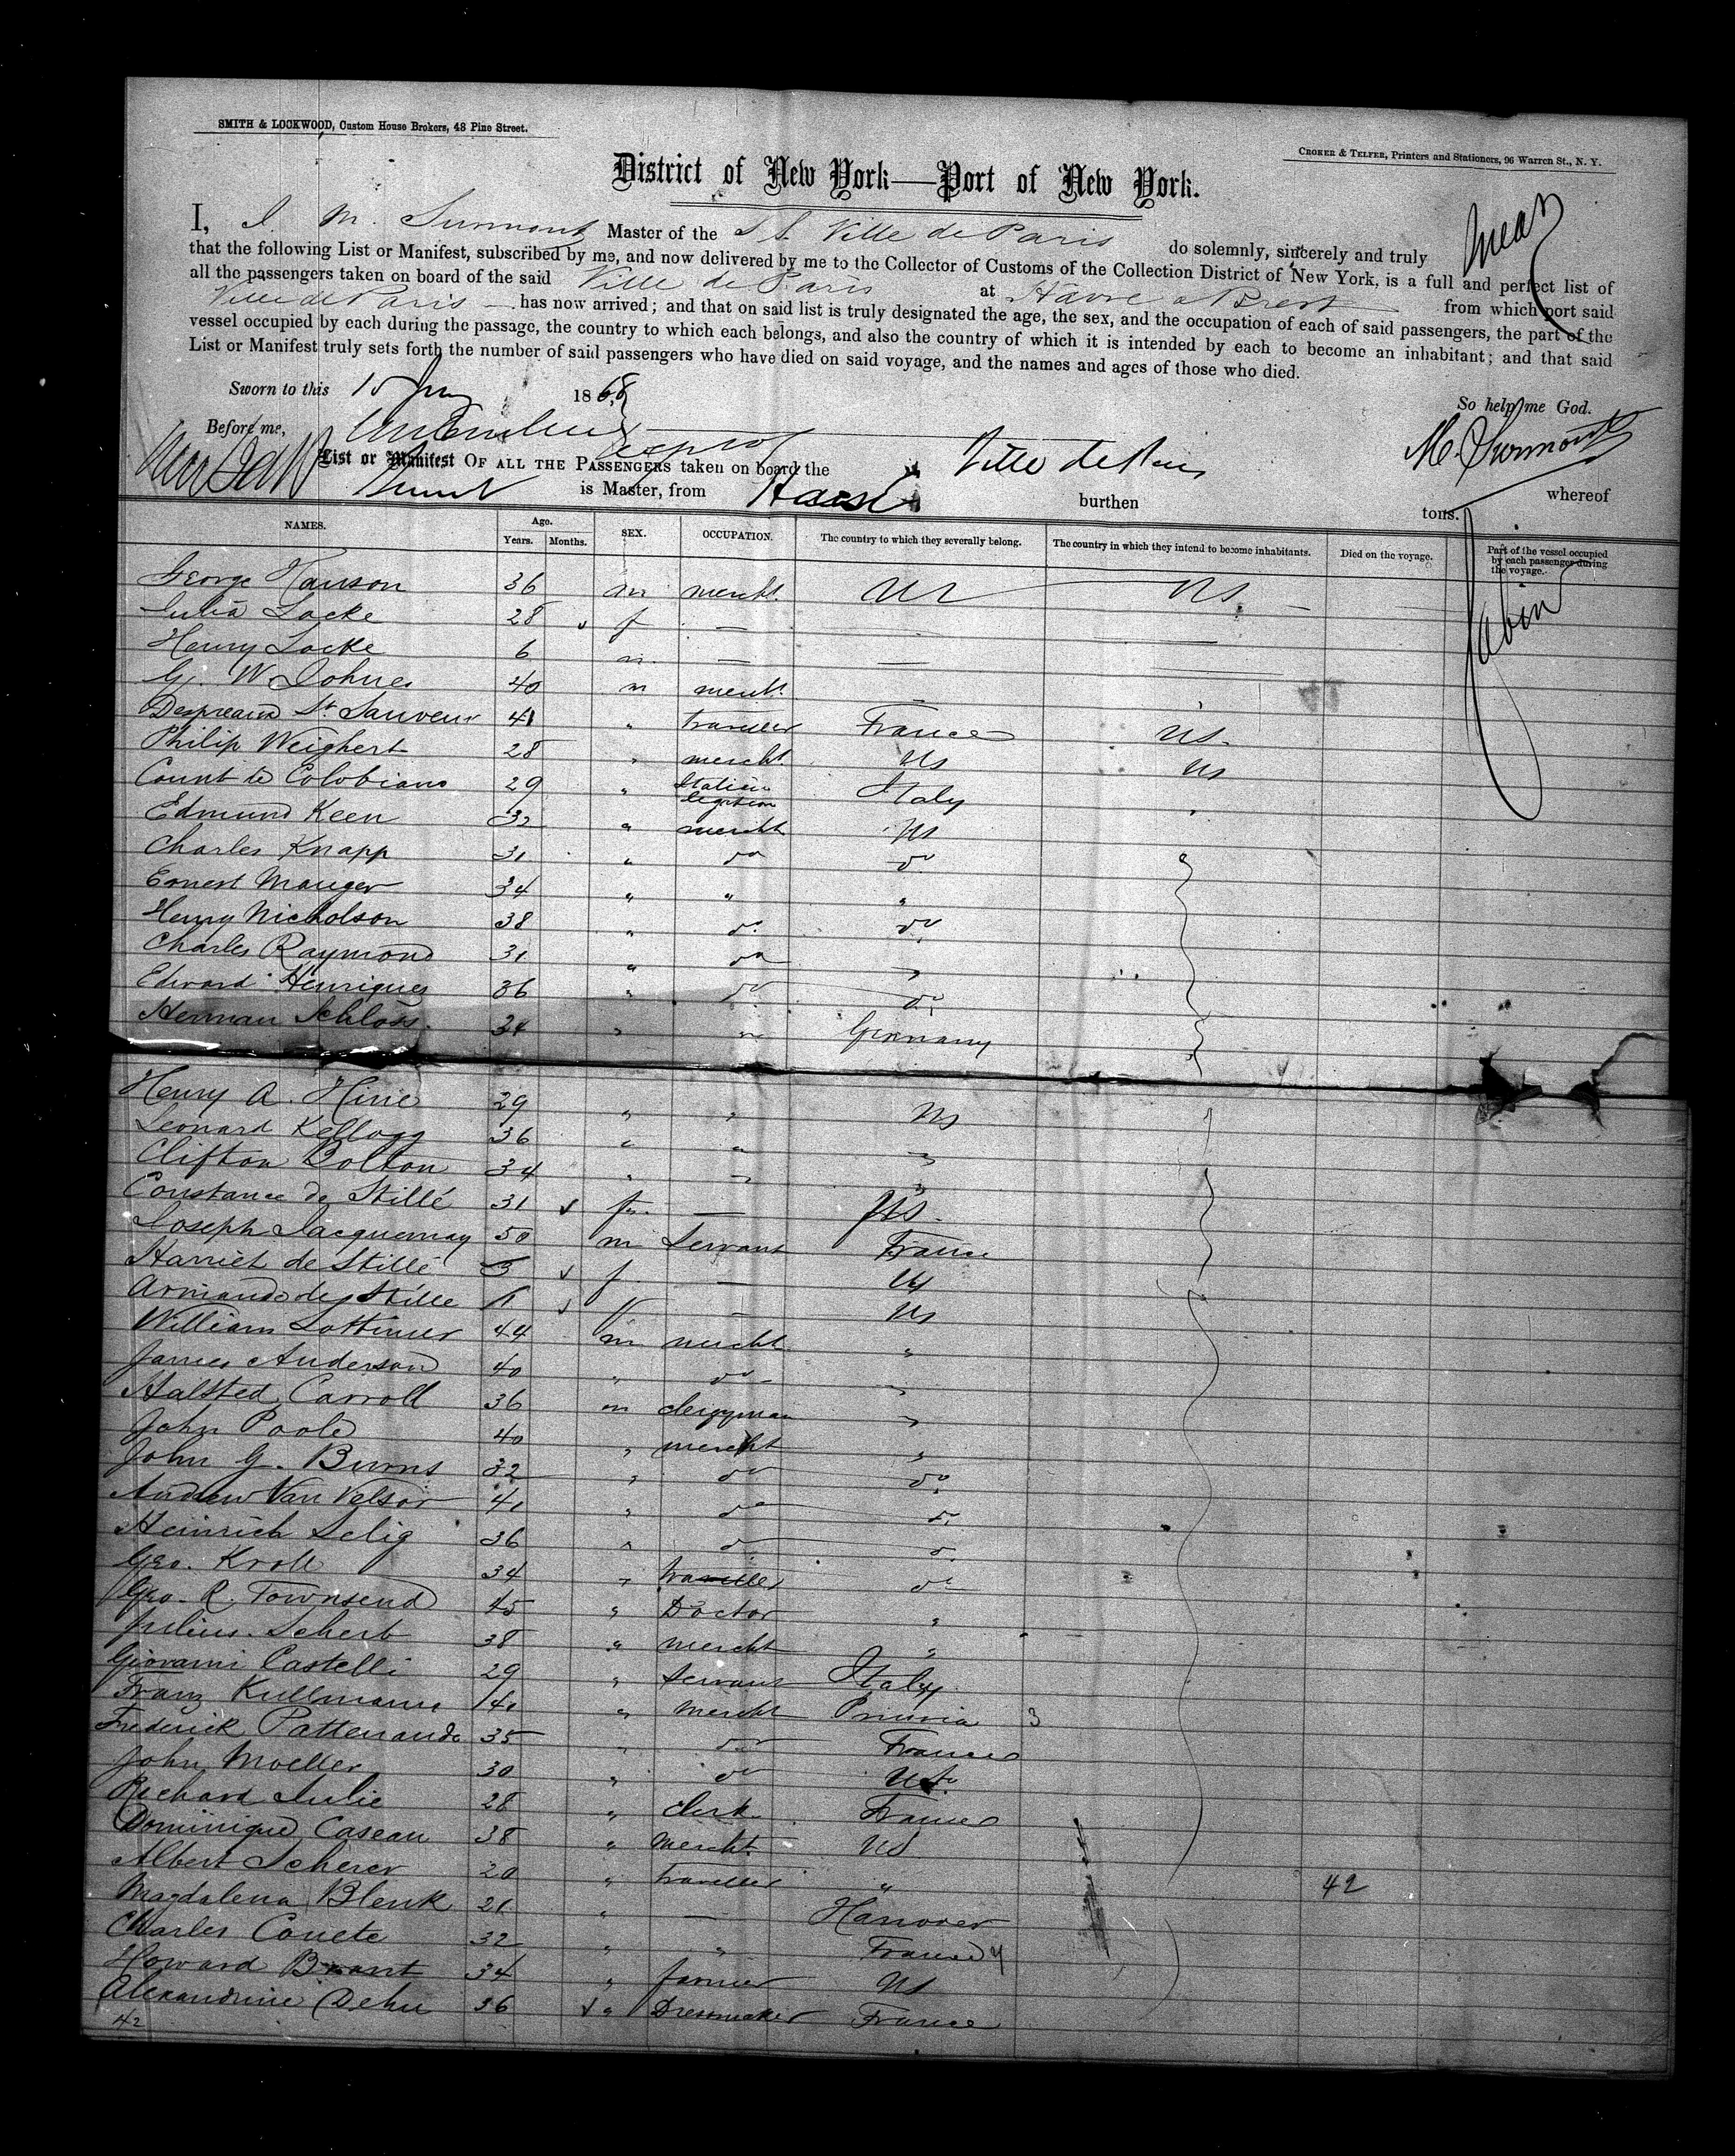 SMITH & LOCKWOOD, Custom House Brokers, 48 Pine Street.
CROKER & TELFER, Printers and Stationers, 96 Warren St., N. Y.
District of New York—Port of New York.
I, J. M. Surmont Master of the S S. Ville de Paris do solemnly, sincerely and truly swear
that the following List or Manifest, subscribed by me, and now delivered by me to the Collector of Customs of the Collection District of New York, is a full and perfect list of
all the passengers taken on board of the said Ville de Paris at Havre & Brest from which port said
Ville de Paris has now arrived; and that on said list is truly designated the age, the sex, and the occupation of each of said passengers, the part of the
vessel occupied by each during the passage, the country to which each belongs, and also the country of which it is intended by each to become an inhabitant; and that said
List or Manifest truly sets forth the number of said passengers who have died on said voyage, and the names and ages of those who died.
Sworn to this 15 1868 So help me God.
Before me, M. Surmont
List or Manifest OF ALL THE PASSENGERS taken on board the Ville de Paris whereof
Surmont is Master, from Havre burthen tons.
NAMES. Age. Years. Months. SEX. OCCUPATION. The country to which they severally belong. The country in which they intend to become inhabitants. Died on the voyage. Part of the vessel occupied by each passenger during the voyage.
George Hanson 36 m mercht. US US Cabin
Julia Locke 28 f —
Henry Locke 6 m. — —
G. W. Johnes 40 m mercht.
St. Sauveur 41 " traveller France US.
Philip Weighert 28 " mercht US US
Count de Colobiano 29 " Italian legation Italy "
Edmund Keen 32 " mercht US
Charles Knapp 31 " do do
Ernest Mauger 34 " " "
Henry Nicholson 38 " do. do.
Charles Raymond 31 " do "
Edward Henriques 36 " do. do.
Herman Schloss. 34 " " Germany
Henry A. Hine 29 " " US
Leonard Kellogg 36 " " "
Clifton Bolton 34 " " "
Constance de Stillé 31 f. — US.
Joseph Jacquemay 50 m Servant France
Harriet de Stillé 3 f — US
Armande de Stille 1 " — US
William Lottimer 44 m mercht. "
James Anderson 40 " do "
Halsted Carroll 36 m clergyman "
John Poole 40 " mercht "
John G. Burns 32 " do do.
Andrew Van Velsor 41 " do do.
Heinrich Selig 36 " do do.
Geo. Kroll 34 " traveller do
Geo. R. Townsend 45 " Doctor "
Julius Scherb 38 " mercht "
Giovanni Castelli 29 " servant Italy
Franz Kullmann 40 " mercht Prussia 3
Frederick Pattenaude 35 " do France
John Moeller 30 " do US
Richard Julie 28 " clerk France
Dominique Caseau 38 " mercht. US
Albert Scherer 20 " traveller " 42
Magdalena Blenk 21 " — Hanover
Charles Couete 32 " " France 4
Howard Brant 34 " farmer US
Alexandrine Dehu 36 " Dressmaker France
42